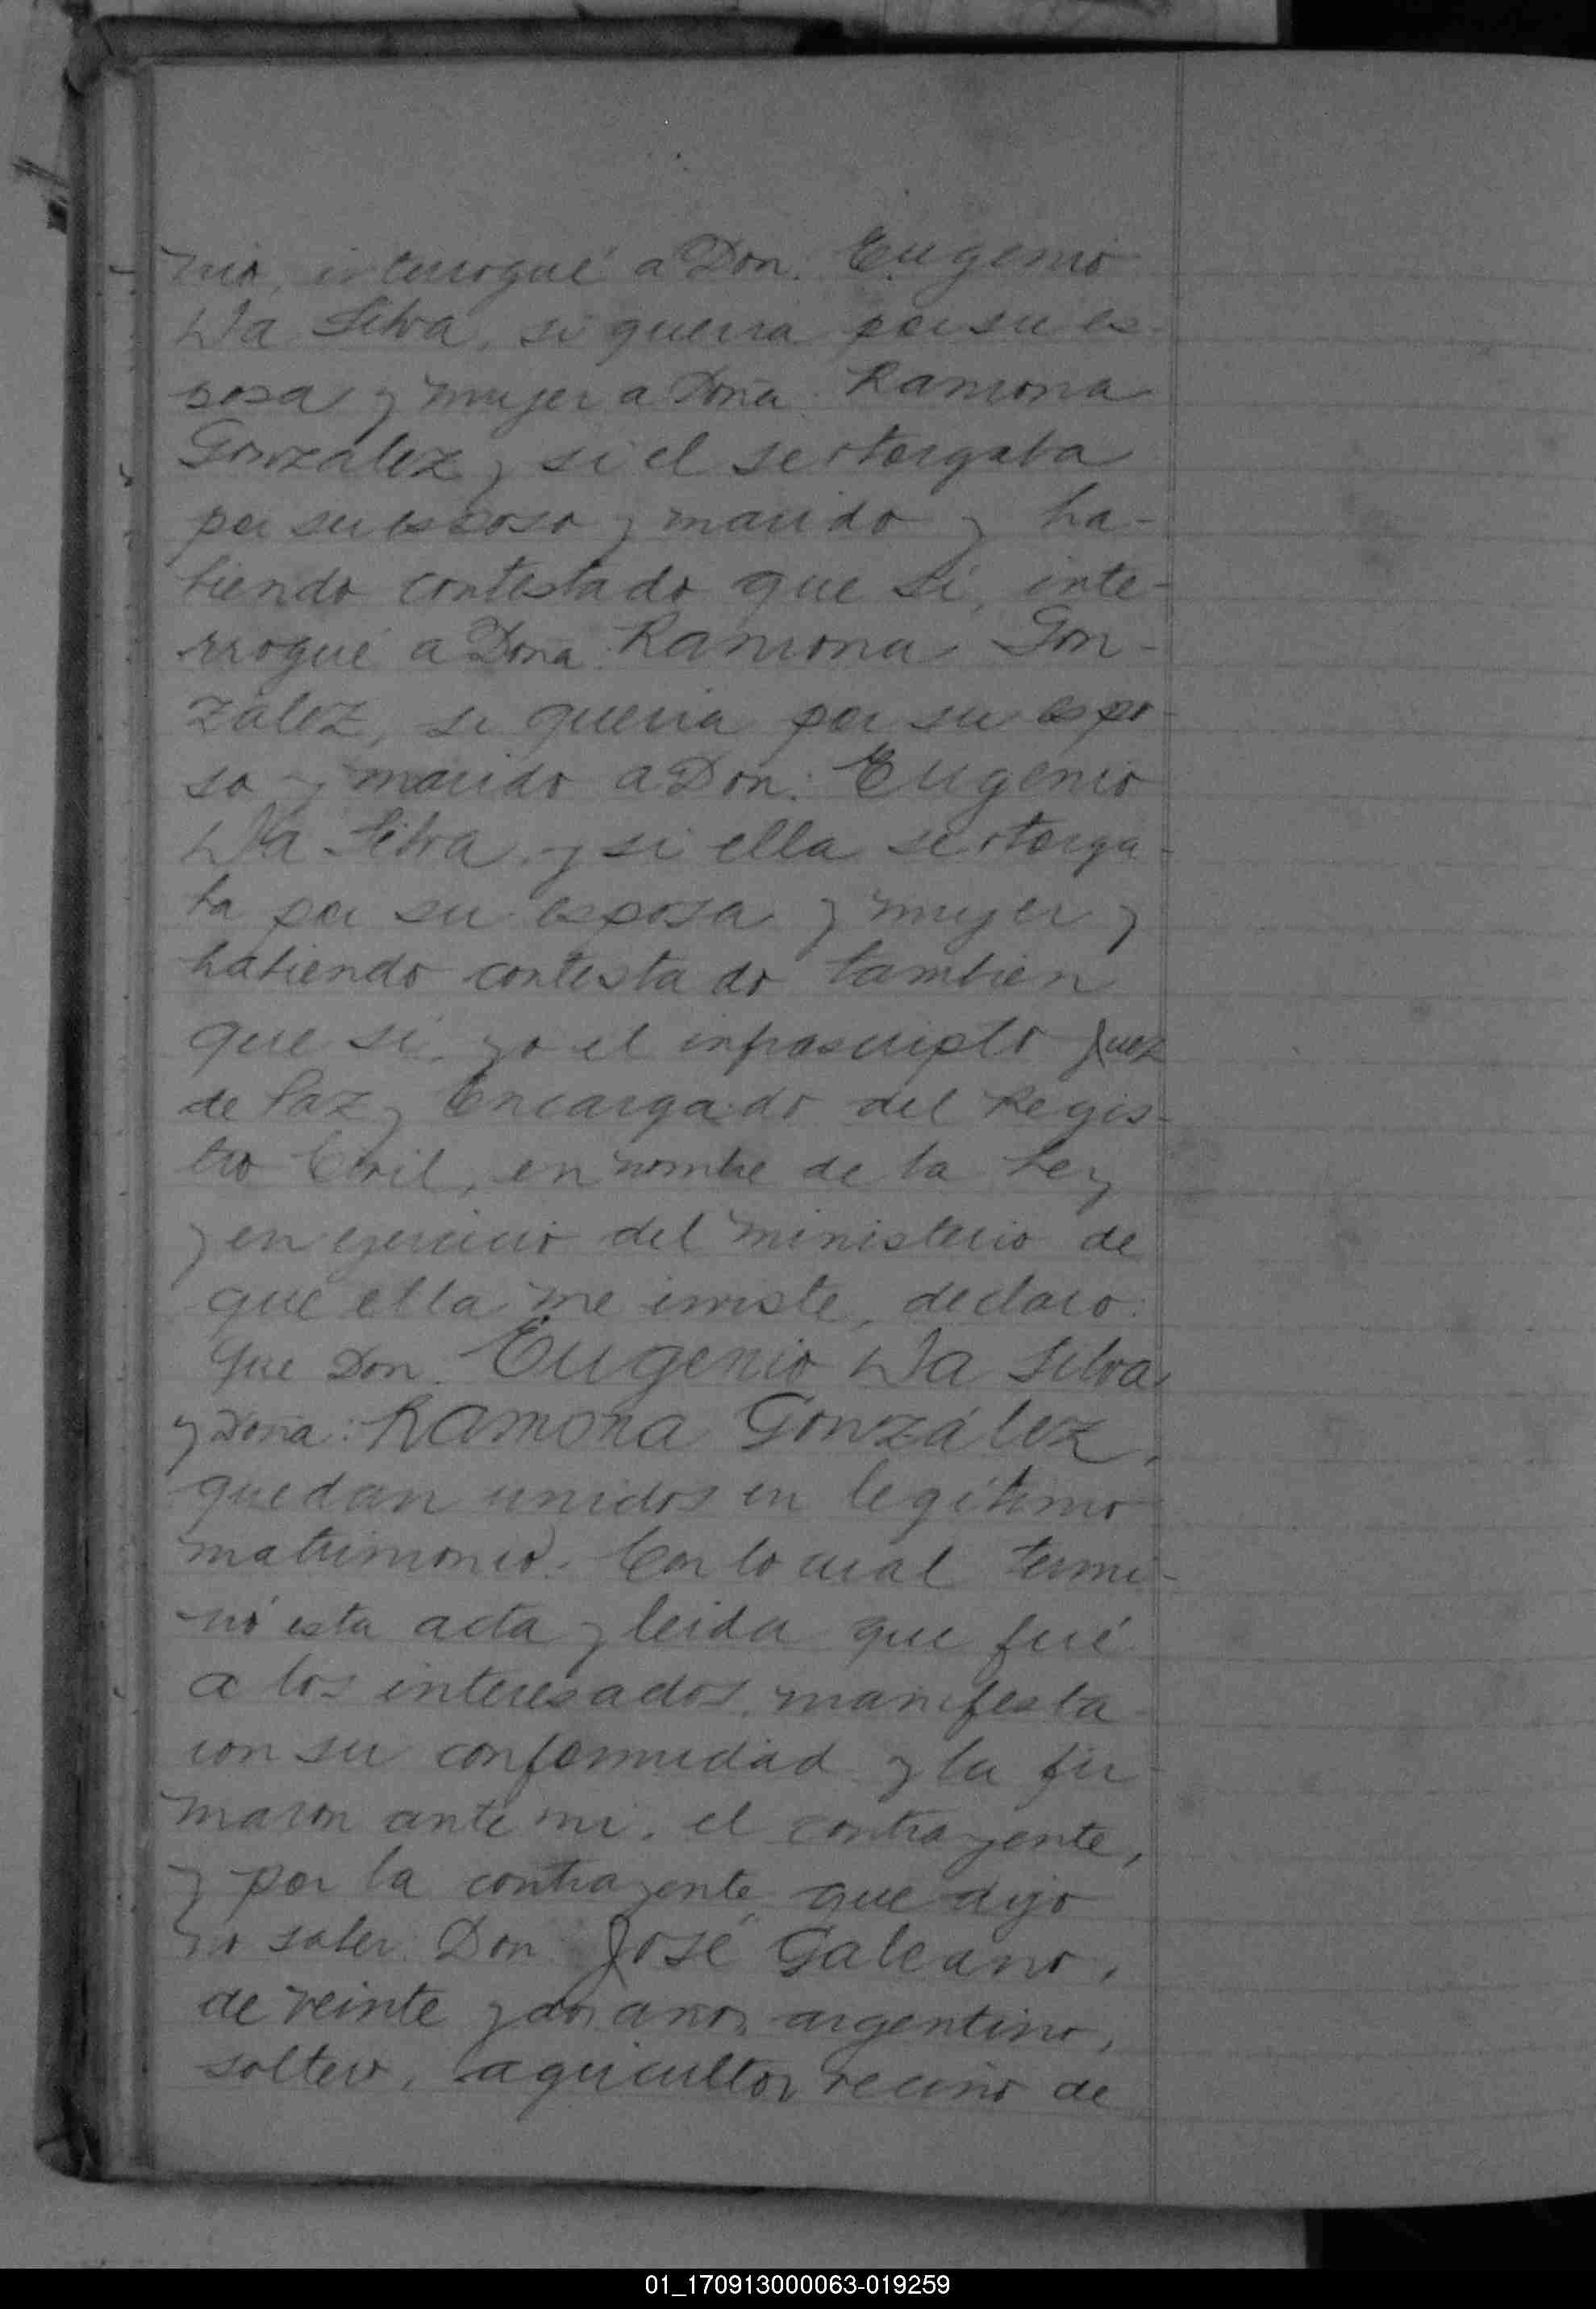 nio, interrogué a Don: Eugenio
Da Silva, si queria por su es-
posa y mujer a Doña: Ramona
González y si el se otorgaba
por su esposo y marido y ha-
biendo contestado que si, inte-
rrogué a Doña: Ramona Gon-
zález, si queria por su espo-
so y marido a Don: Eugenio
Da Silva, y si ella se otorga-
ba por su esposa y mujer y
habiendo contestado tambien
que si, yo el infrascripto Juez
de Paz y Encargado del Regis-
tro Civil, en nombre de la Ley
y en ejercicio del ministerio de
que ella me inviste, declaro:
Que Don: Eugenio Da Silva
y Doña: Ramona González,
quedan unidos en legítimo
matrimonio. Con lo cual termi-
nó esta acta y leida que fué
a los interesados, manifesta-
ron su conformidad y la fir-
maron ante mi, el contrayente,
y por la contrayente que dijo
no saber Don José Galeano,
de veinte y dos años, argentino,
soltero, agricultor, vecino de
01_170913000063-019259